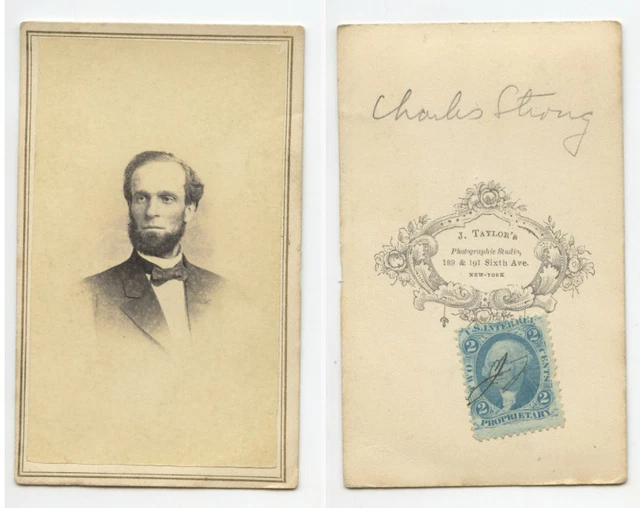 Charles Strong
J. TAYLOR'S
Photographic Studio,
189 & 191 Sixth Ave.
NEW-YORK
U.S. INTER. REV.
2 2
TWO CENTS
2 2
PROPRIETARY